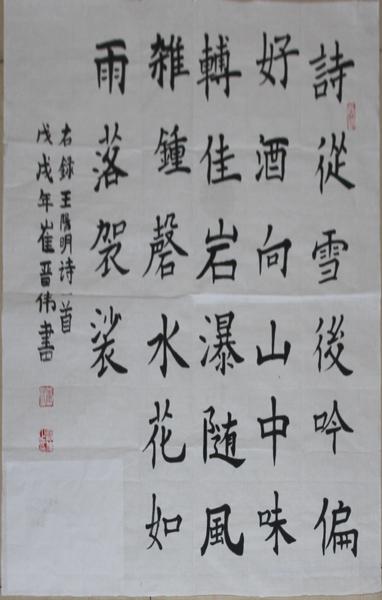 詩從雪後吟偏
好酒向山中味
轉佳岩瀑随風
雜鍾磬水花如
雨落袈裟
右録王陽明诗一首
戊戌年崔晋伟書